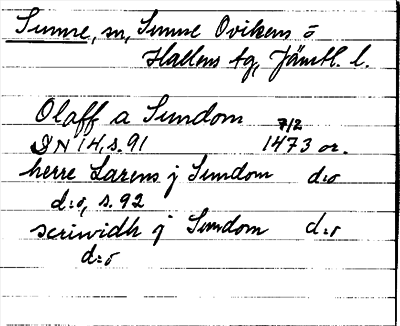 Sunne, sn, Sunne Ovikens o
Hallens tg, Jämtl. l.
Olaff a Sundom
DN 14, s. 91 7/2 1473 or.
herre Larens j Sundom d:o
d:o, s. 92
scriwidh j Sundom d:o
d:o